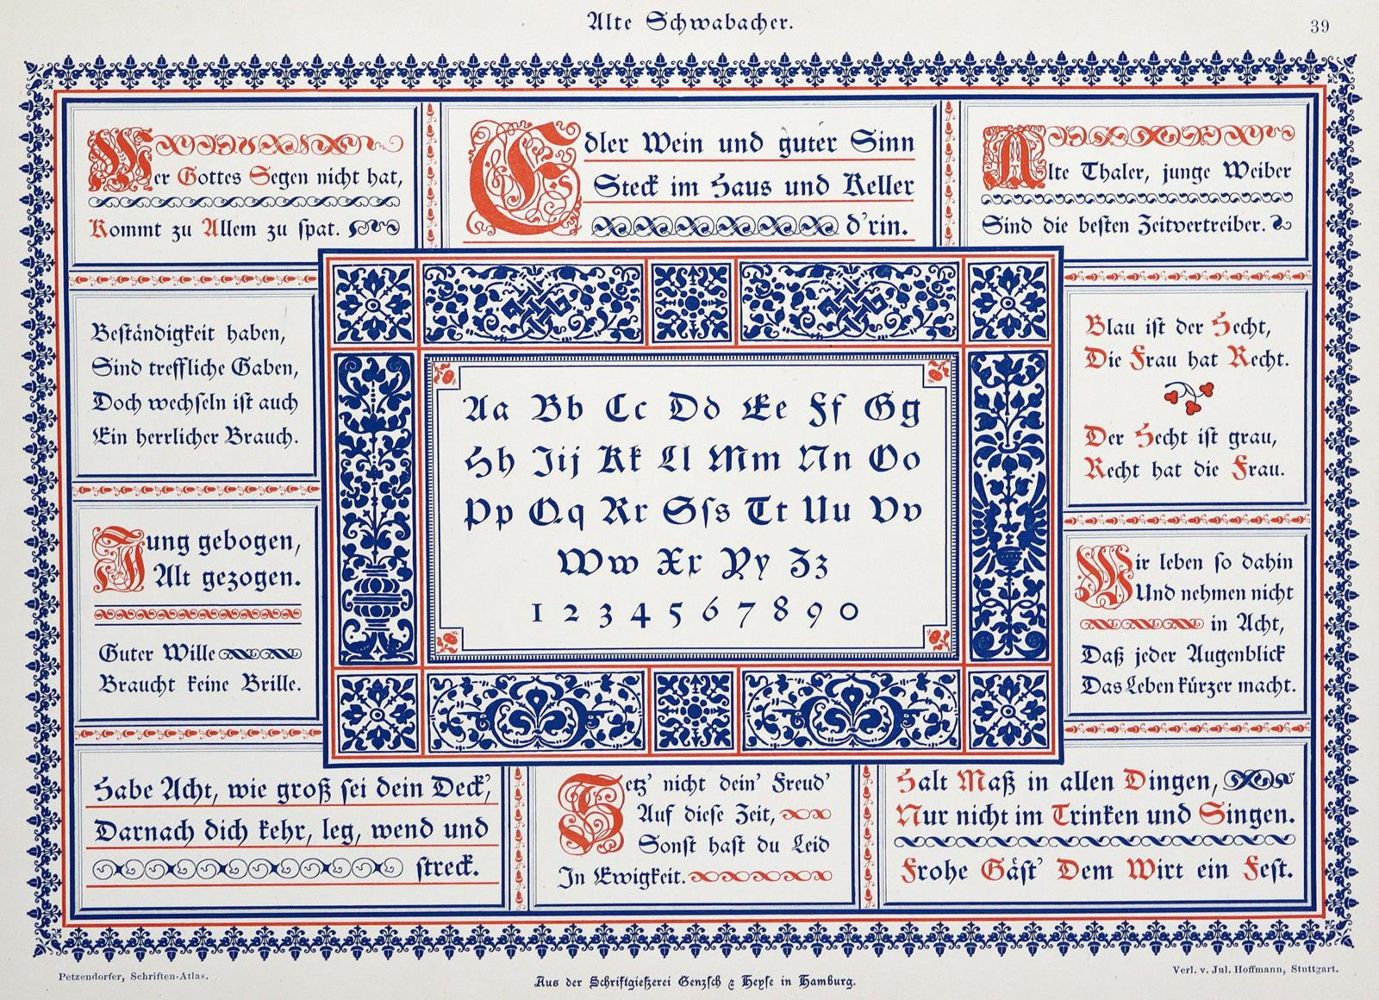 Alte Schwabacher.
39
Wer Gottes Segen nicht hat,
Kommt zu Allem zu spat.
Edler Wein und guter Sinn
Steck im Haus und Keller
d'rin.
Alte Thaler, junge Weiber
Sind die besten Zeitvertreiber.
Beständigkeit haben,
Sind treffliche Gaben,
Doch wechseln ist auch
Ein herrlicher Brauch.
Jung gebogen,
Alt gezogen.
Guter Wille
Braucht keine Brille.
Aa Bb Cc Dd Ee Ff Gg
Hh Iij Kk Ll Mm Nn Oo
Pp Qq Rr Sſs Tt Uu Vv
Ww Xx Yy Zz
1 2 3 4 5 6 7 8 9 0
Blau ist der Hecht,
Die Frau hat Recht.
Der Hecht ist grau,
Recht hat die Frau.
Wir leben so dahin
Und nehmen nicht
in Acht,
Daß jeder Augenblick
Das Leben kürzer macht.
Habe Acht, wie groß sei dein Deck',
Darnach dich kehr, leg, wend und
streck.
Setz' nicht dein' Freud'
Auf diese Zeit,
Sonst hast du Leid
In Ewigkeit.
Halt Maß in allen Dingen,
Nur nicht im Trinken und Singen.
Frohe Gäst' Dem Wirt ein Fest.
Petzendorfer, Schriften-Atlas.
Aus der Schriftgießerei Genzsch & Heyse in Hamburg.
Verl. v. Jul. Hoffmann, Stuttgart.